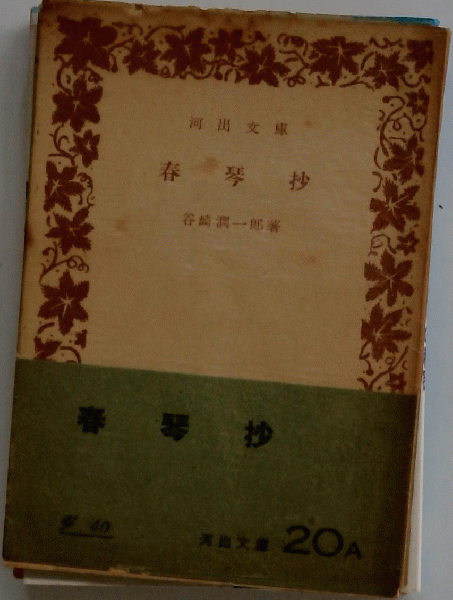 河出文庫
春琴抄
谷崎潤一郎著
春琴抄
¥ 40
河出文庫 20A